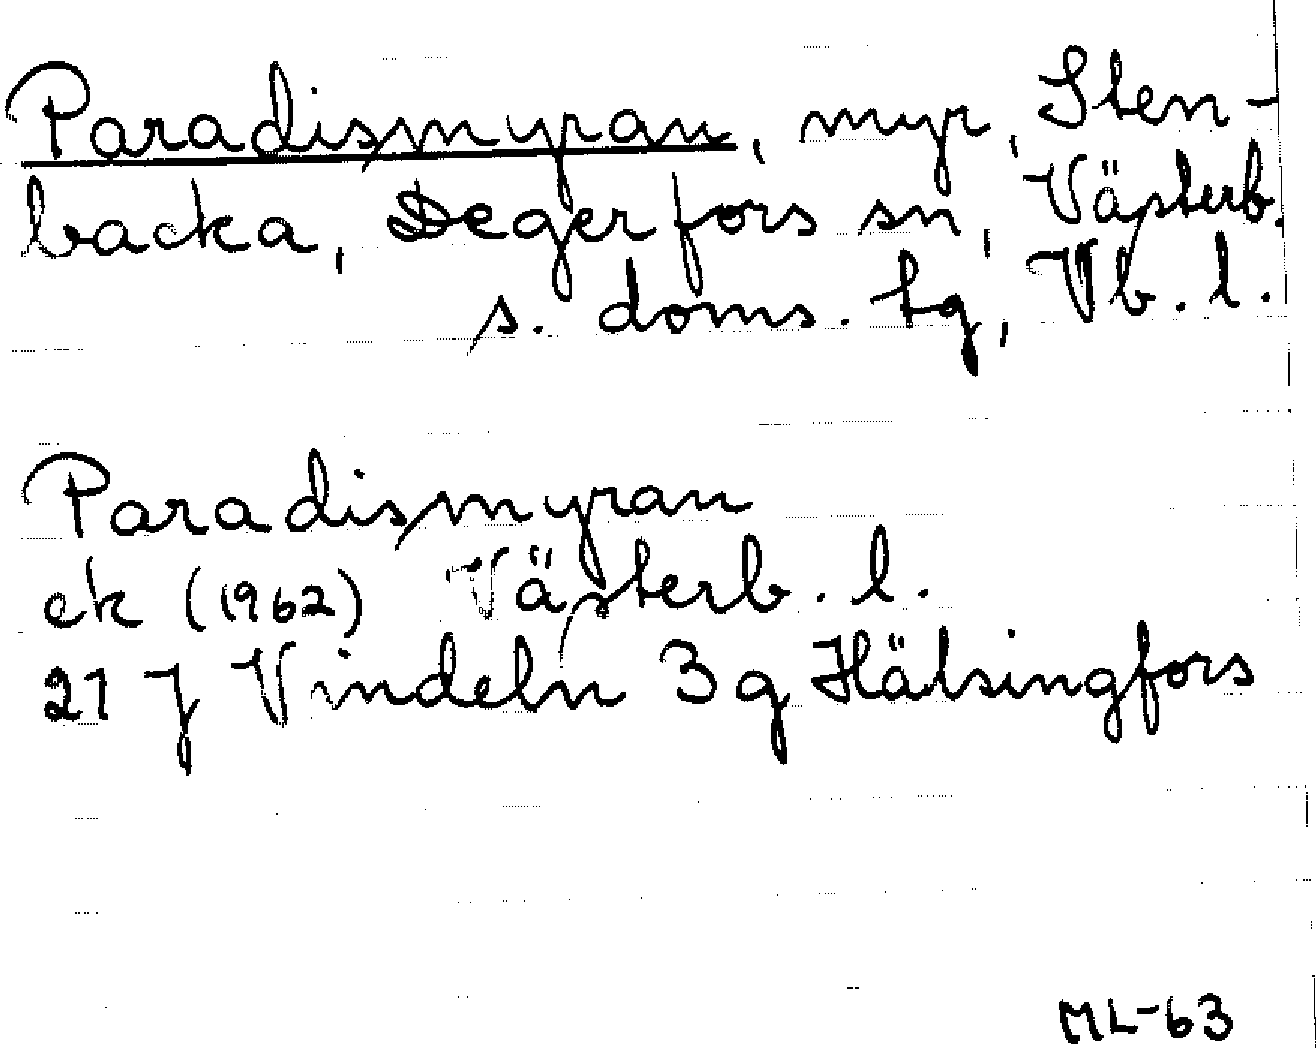 Paradismyran, myr, Sten-
backa, Degerfors sn, Västerb.
s. doms. tg, Vb. l.
Paradismyran
ek (1962) Västerb. l.
21 J Vindeln 3 g Hälsingfors
ML-63